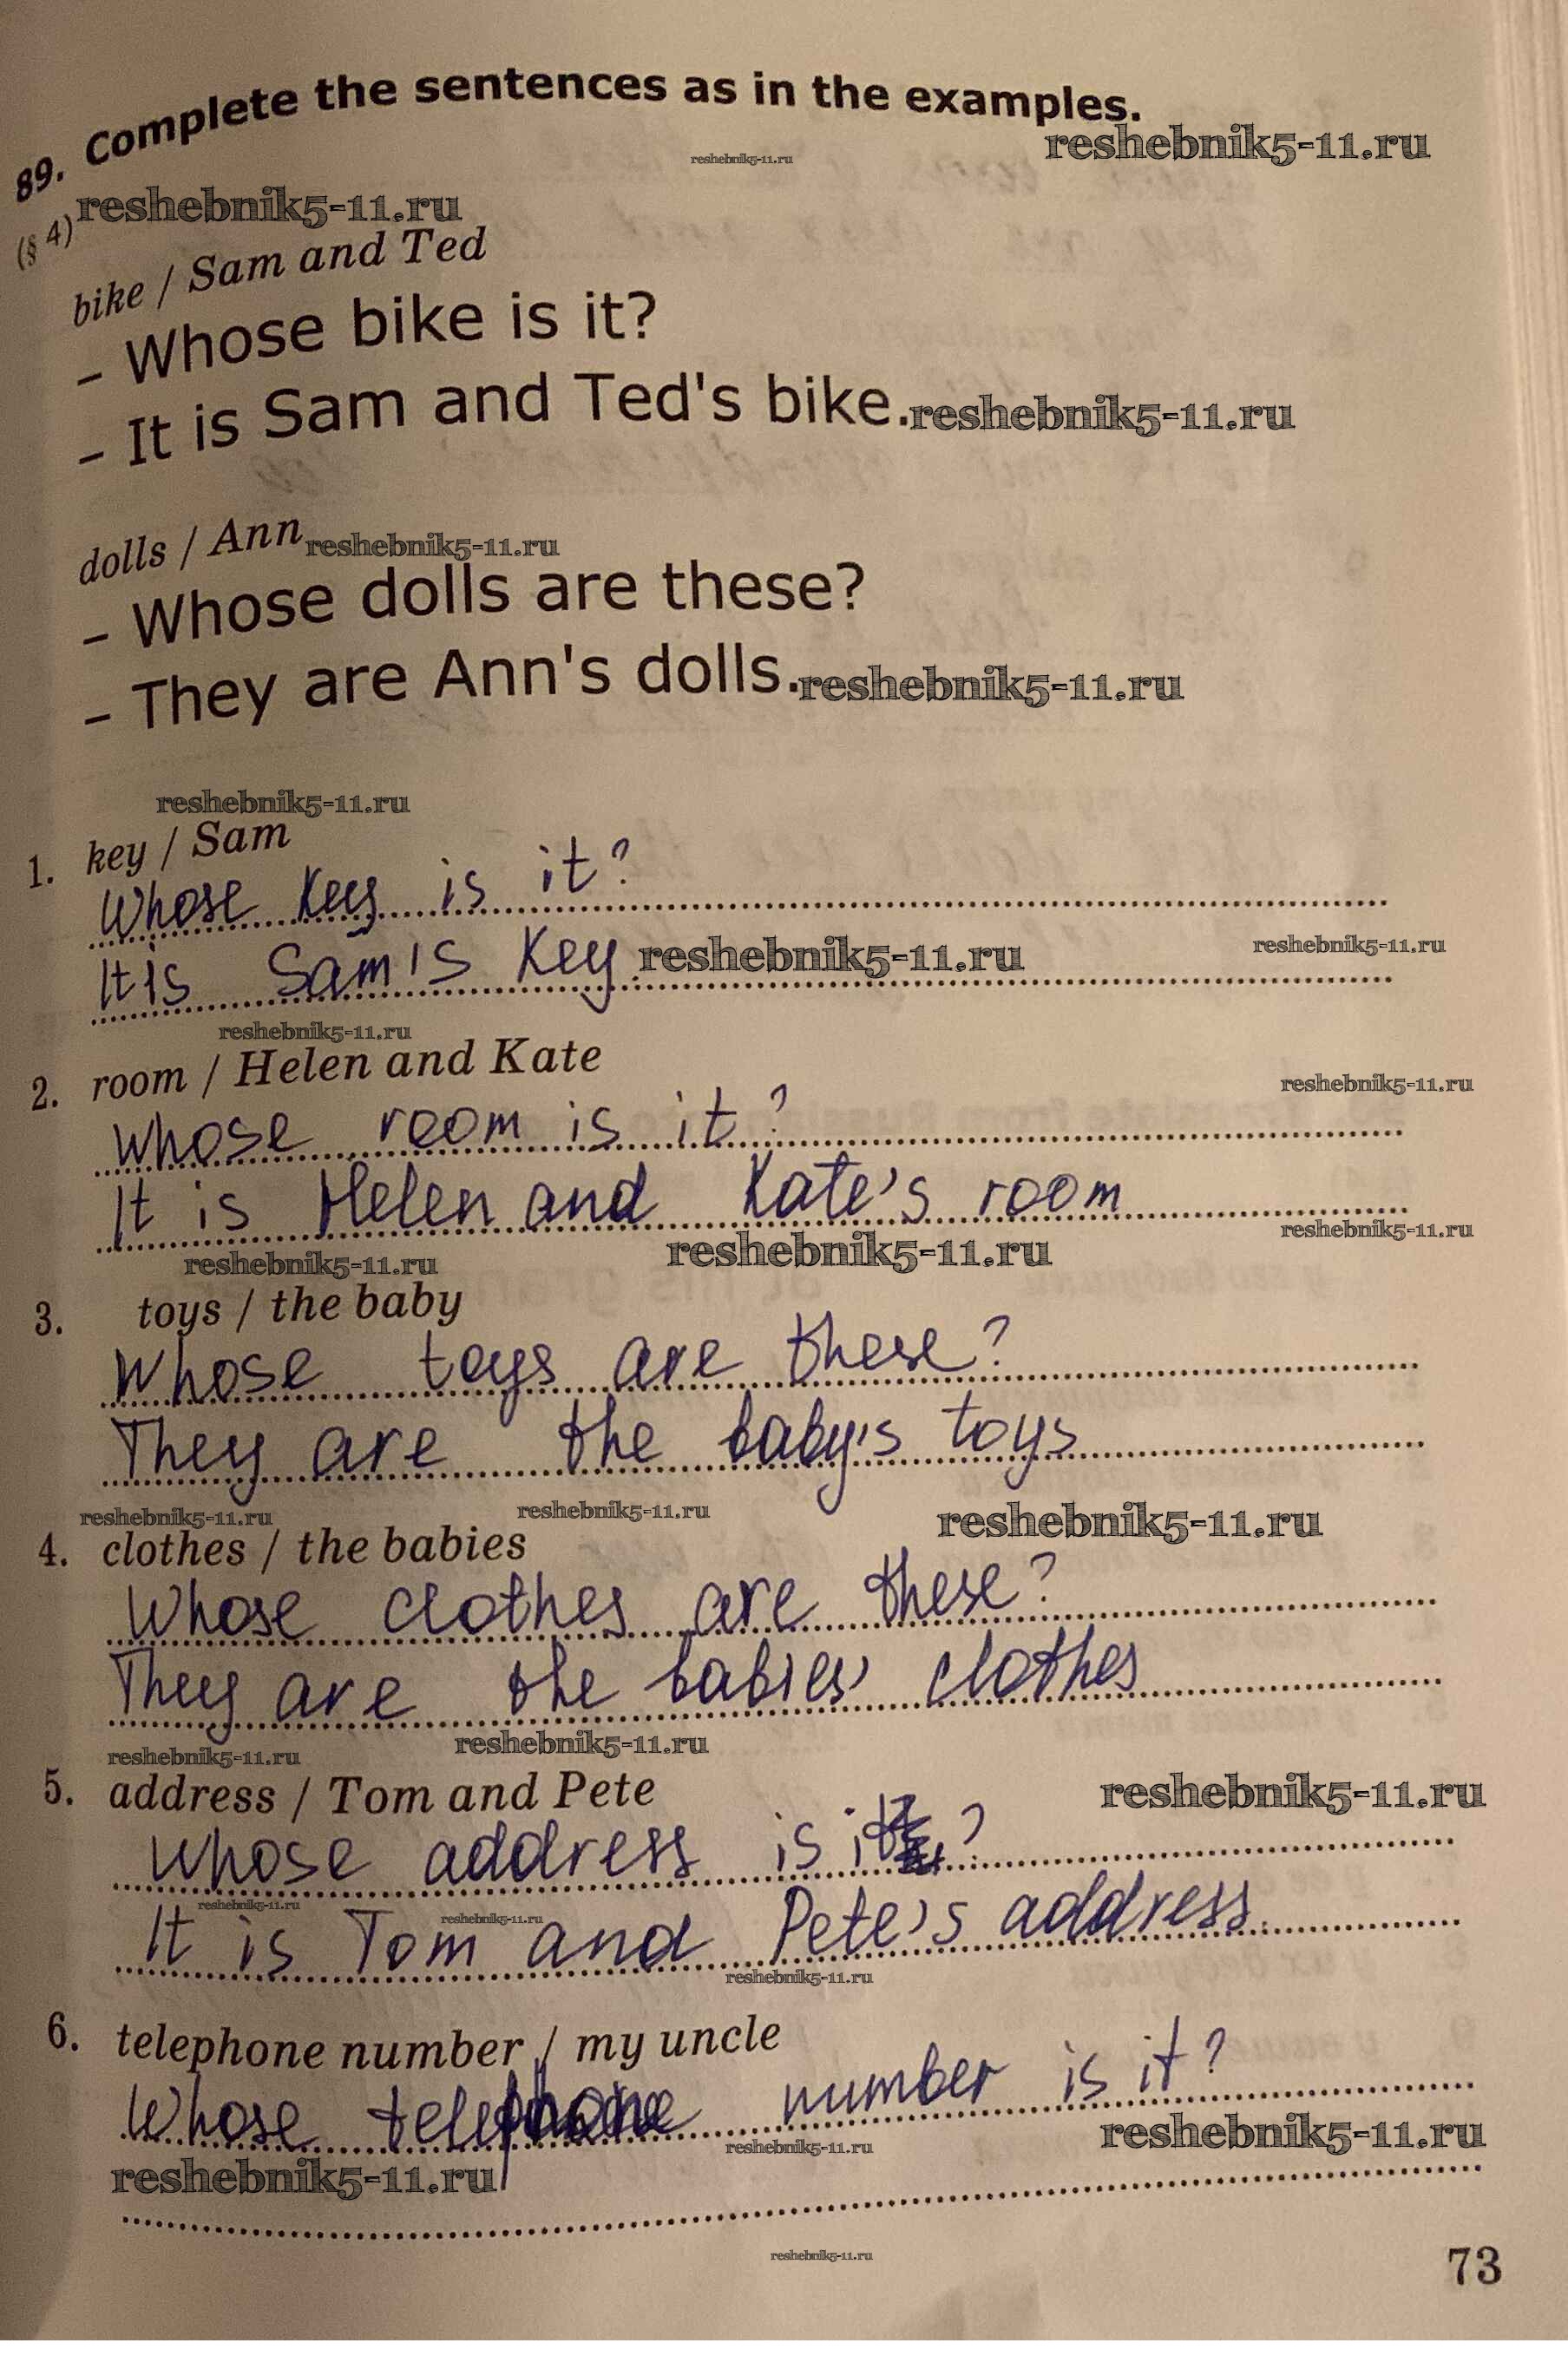 89. Complete the sentences as in the examples.
reshebnik5-11.ru
reshebnik5-11.ru
(§ 4) reshebnik5-11.ru
bike / Sam and Ted
– Whose bike is it?
– It is Sam and Ted's bike. reshebnik5-11.ru
dolls / Ann reshebnik5-11.ru
– Whose dolls are these?
– They are Ann's dolls. reshebnik5-11.ru
reshebnik5-11.ru
1. key / Sam
Whose key is it?
It is Sam's key. reshebnik5-11.ru reshebnik5-11.ru
reshebnik5-11.ru
2. room / Helen and Kate
reshebnik5-11.ru
Whose room is it?
It is Helen and Kate's room
reshebnik5-11.ru
reshebnik5-11.ru reshebnik5-11.ru
3. toys / the baby
Whose toys are these?
They are the baby's toys
reshebnik5-11.ru reshebnik5-11.ru reshebnik5-11.ru
4. clothes / the babies
Whose clothes are these?
They are the babies' clothes
reshebnik5-11.ru reshebnik5-11.ru
5. address / Tom and Pete reshebnik5-11.ru
Whose address is it?
reshebnik5-11.ru reshebnik5-11.ru
It is Tom and Pete's address.
reshebnik5-11.ru
6. telephone number / my uncle
Whose telephone number is it?
reshebnik5-11.ru reshebnik5-11.ru
reshebnik5-11.ru
reshebnik5-11.ru
73